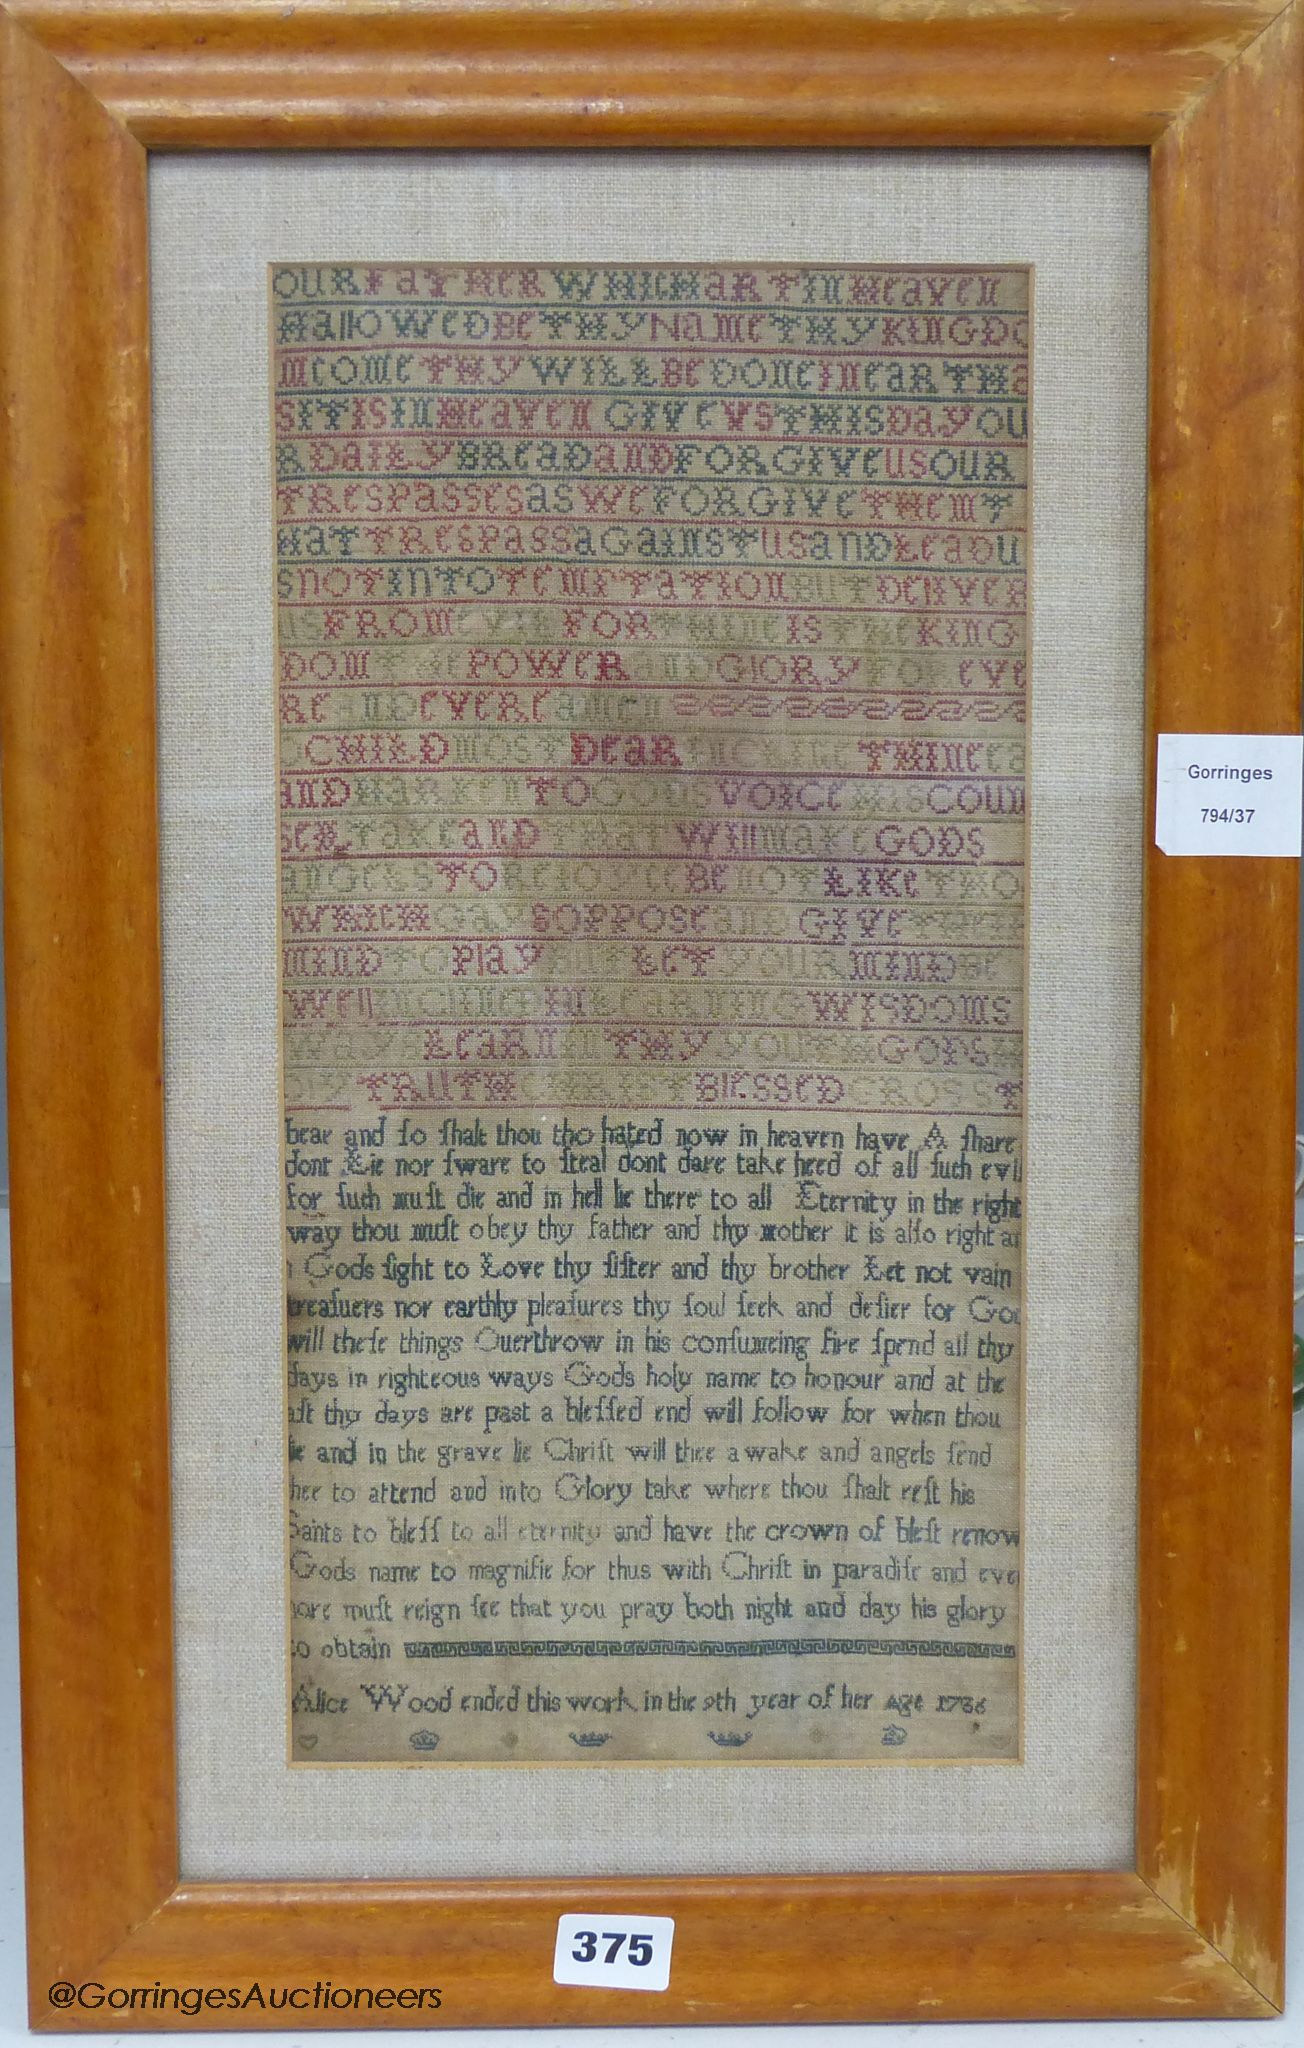 OUR FATHER WHICH ART IN HEAVEN
HALLOWED BE THY NAME THY KINGDO
M COME THY WILL BE DONE IN EARTH A
S IT IS IN HEAVEN GIVE VS THIS DAY OU
R DAILY BREAD AND FORGIVE US OUR
TRESPASSES AS WE FORGIVE THEM T
HAT TRESPASS AGAINST US AND LEAD U
S NOT INTO TEMPTATION BUT DELIVER
US FROM EVIL FOR THINE IS THE KING
DOM THE POWER AND GLORY FOR EVE
RE AND EVERE AMEN
O CHILD MOST DEAR INCLINE THINE EA
AND HARKEN TO GODS VOICE HIS COUN
SEL TAKE AND THAT WILL MAKE GODS
ANGELS TO REIOYCE BE NOT LIKE THO
WHICH GAY SOPPOSE AND GIVE
MIND TO PLAY BUT LET YOUR MIND BE
WELL INCLIND IN LEARNING WISDOMS
WAYS LEARN IN THY YOUTH GODS H
OLY TRUTH CHRIST BLESSED CROSS T
bear and so ſhalt thou tho hated now in heaven have A ſhare
dont Lie nor ſware to ſteal dont dare take heed of all ſuch evil
for ſuch muſt die and in hell lie there to all Eternity in the right
way thou muſt obey thy father and thy mother it is alſo right an
Gods ſight to Love thy ſiſter and thy brother Let not vain
treaſuers nor earthly pleaſures thy ſoul ſeek and deſier for God
will theſe things Ouerthrow in his conſumeing fire ſpend all thy
days in righteous ways Gods holy name to honour and at the
aſt thy days are past a bleſſed end will follow for when thou
ie and in the grave lie Chriſt will thee awake and angels ſend
hee to attend and into Glory take where thou ſhalt reſt his
Saints to bleſſ to all eternity and have the crown of bleſt renow
Gods name to magniſie for thus with Chriſt in paradiſe and eve
more muſt reign ſee that you pray both night and day his glory
to obtain
Alice Wood ended this work in the 9th year of her Age 1736
Gorringes
794/37
375
@GorringesAuctioneers